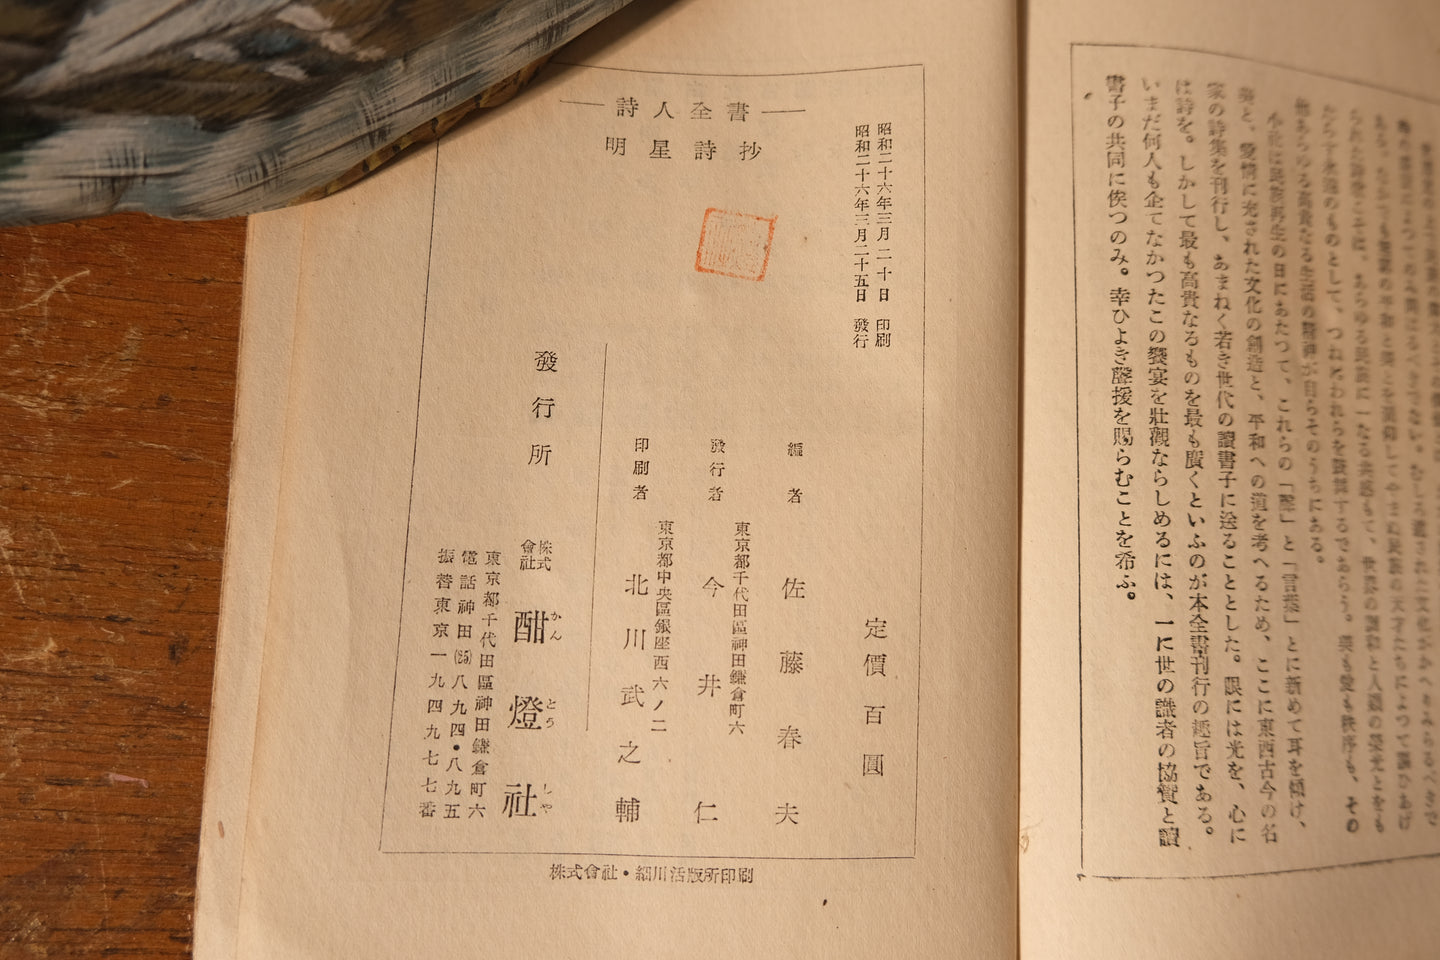 られた詩歌こそは、あらゆる民族に一なる共感もて、世界の調和と人類の榮光とをも
たらす永遠のものとして、つねにわれらを鼓舞するであらう。美も愛も秩序も、その
他あらゆる高貴なる生活の精神が自らそのうちにある。
小社は民族再生の日にあたつて、これらの「聲」と「言葉」とに新めて耳を傾け、
美と、愛情に充された文化の創造と、平和への道を考へるため、ここに東西古今の名
家の詩集を刊行し、あまねく若き世代の讀書子に送ることとした。眼には光を、心に
は詩を。しかして最も高貴なるものを最も廣くといふのが本全書刊行の趣旨である。
いまだ何人も企てなかつたこの饗宴を壯觀ならしめるには、一に世の識者の協賛と讀
書子の共同に俟つのみ。幸ひよき聲援を賜らむことを希ふ。
詩人全書
明星詩抄
昭和二十六年三月二十日 印刷
昭和二十六年三月二十五日 發行
定價百圓
編者 佐藤春夫
東京都千代田區神田鎌倉町六
發行者 今井仁
東京都中央區銀座西六ノ二
印刷者 北川武之輔
發行所 株式會社 酣燈社
かんとうしや
東京都千代田區神田鎌倉町六
電話神田(25)八九四・八九五
振替東京一九四九七七番
株式會社・細川活版所印刷